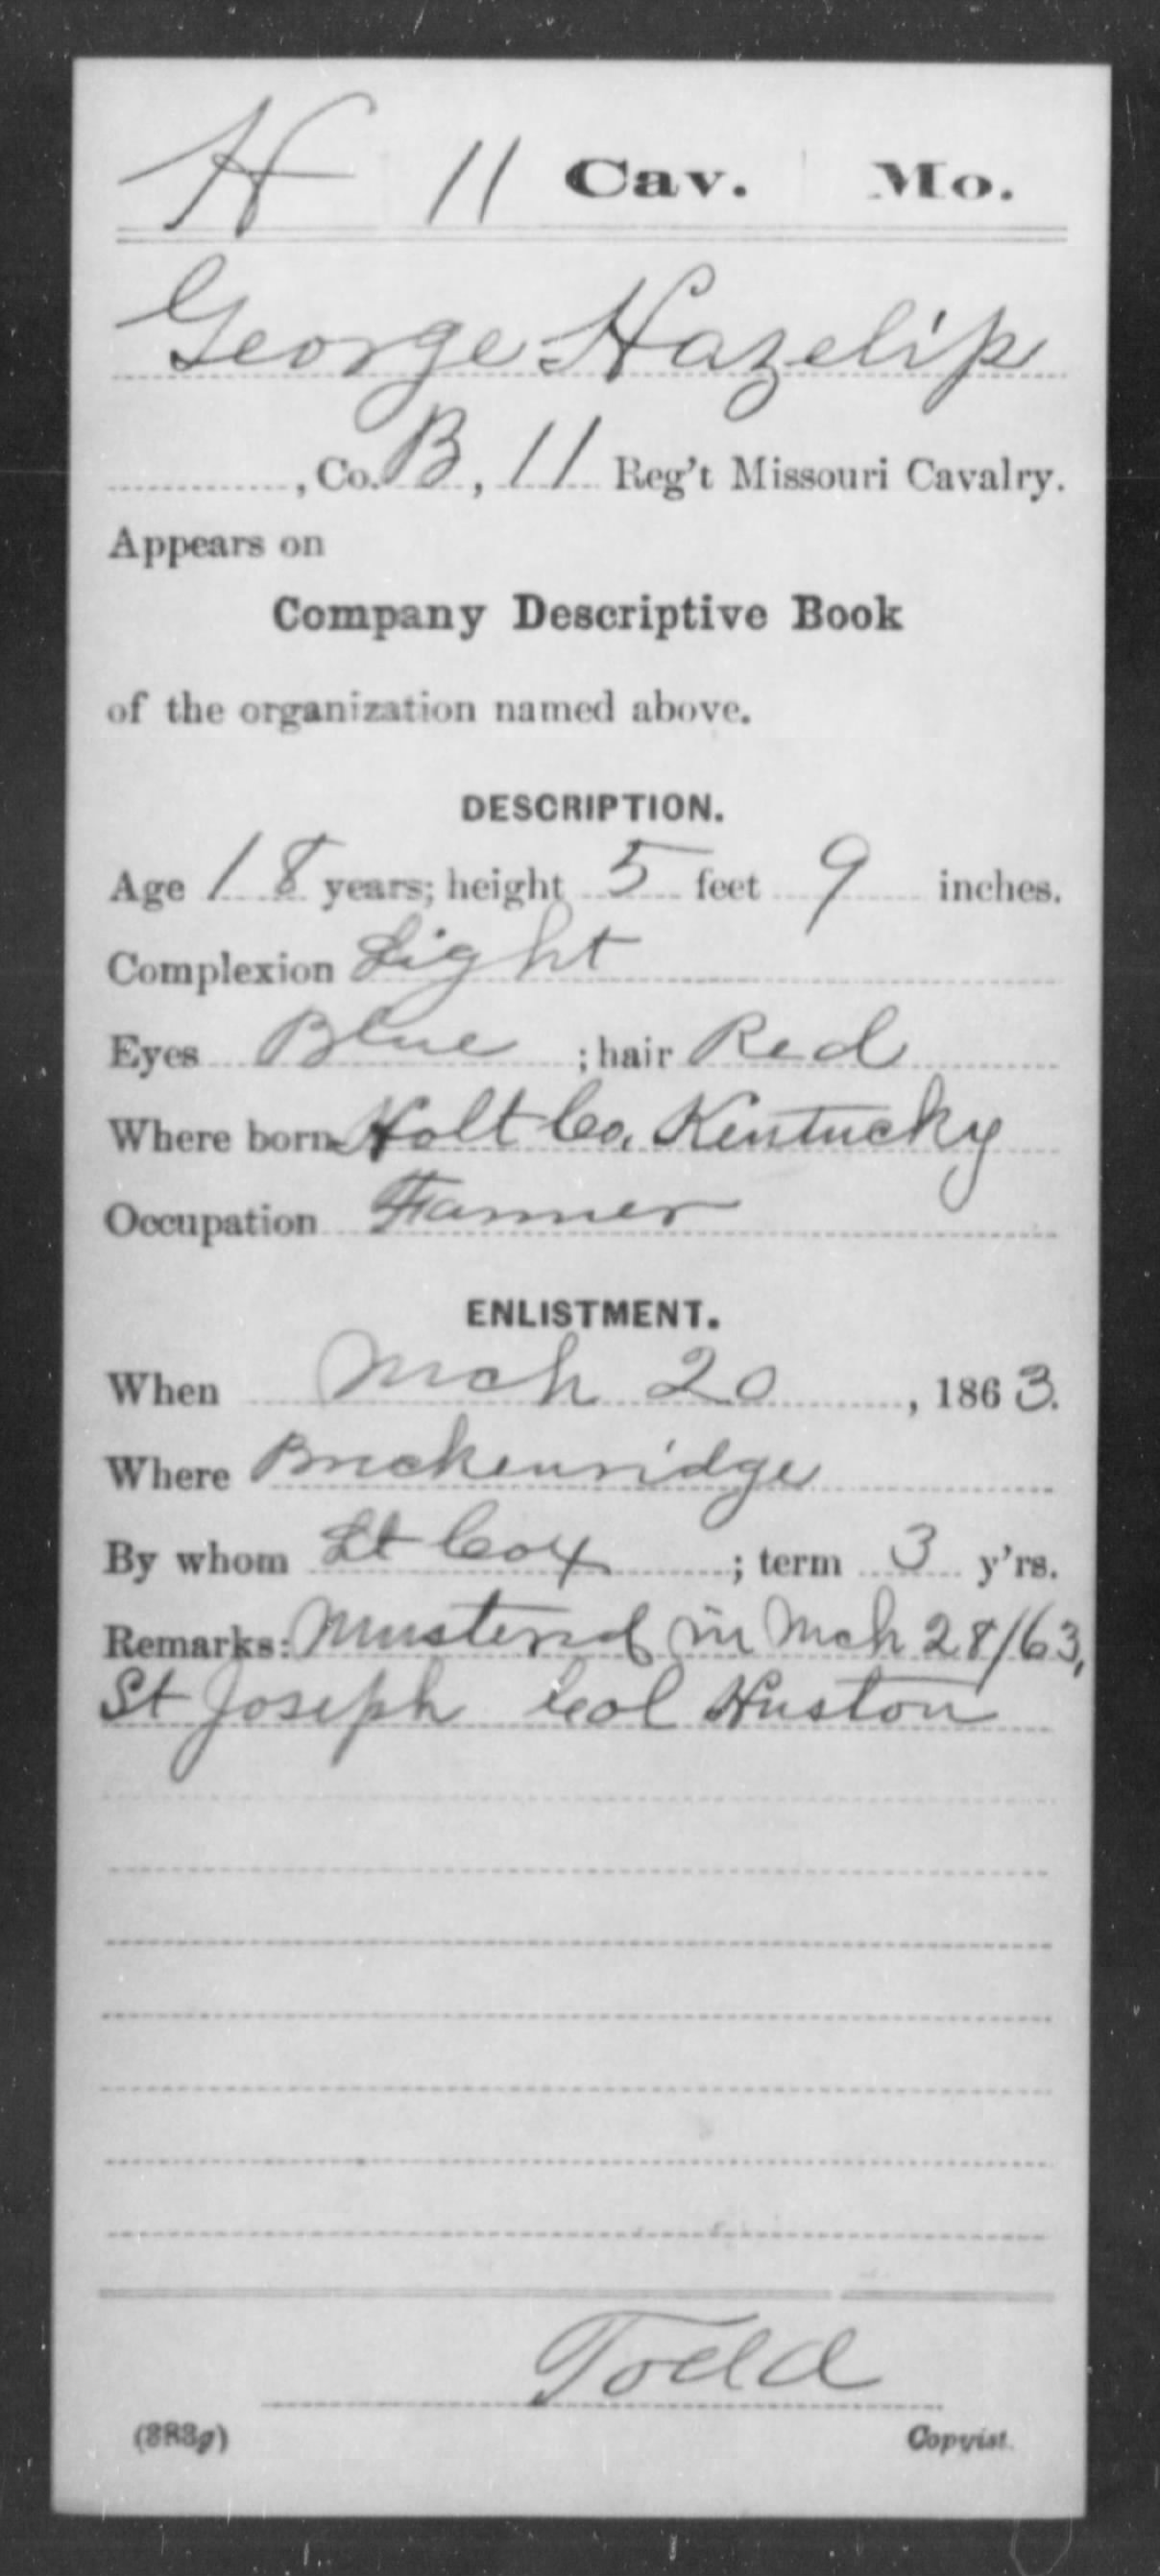 H 11 Cav. Mo.
George Hazelip
, Co. B, 11 Reg't Missouri Cavalry.
Appears on
Company Descriptive Book
of the organization named above.
DESCRIPTION.
Age 18 years; height 5 feet 9 inches.
Complexion Light
Eyes Blue ; hair Red
Where born Holt Co. Kentucky
Occupation Farmer
ENLISTMENT.
When Mch 20, 1863.
Where Breckenridge
By whom Lt Cox ; term 3 y'rs.
Remarks: Mustered in Mch 28/63,
St Joseph Col Huston
Todd
(383g) Copyist.